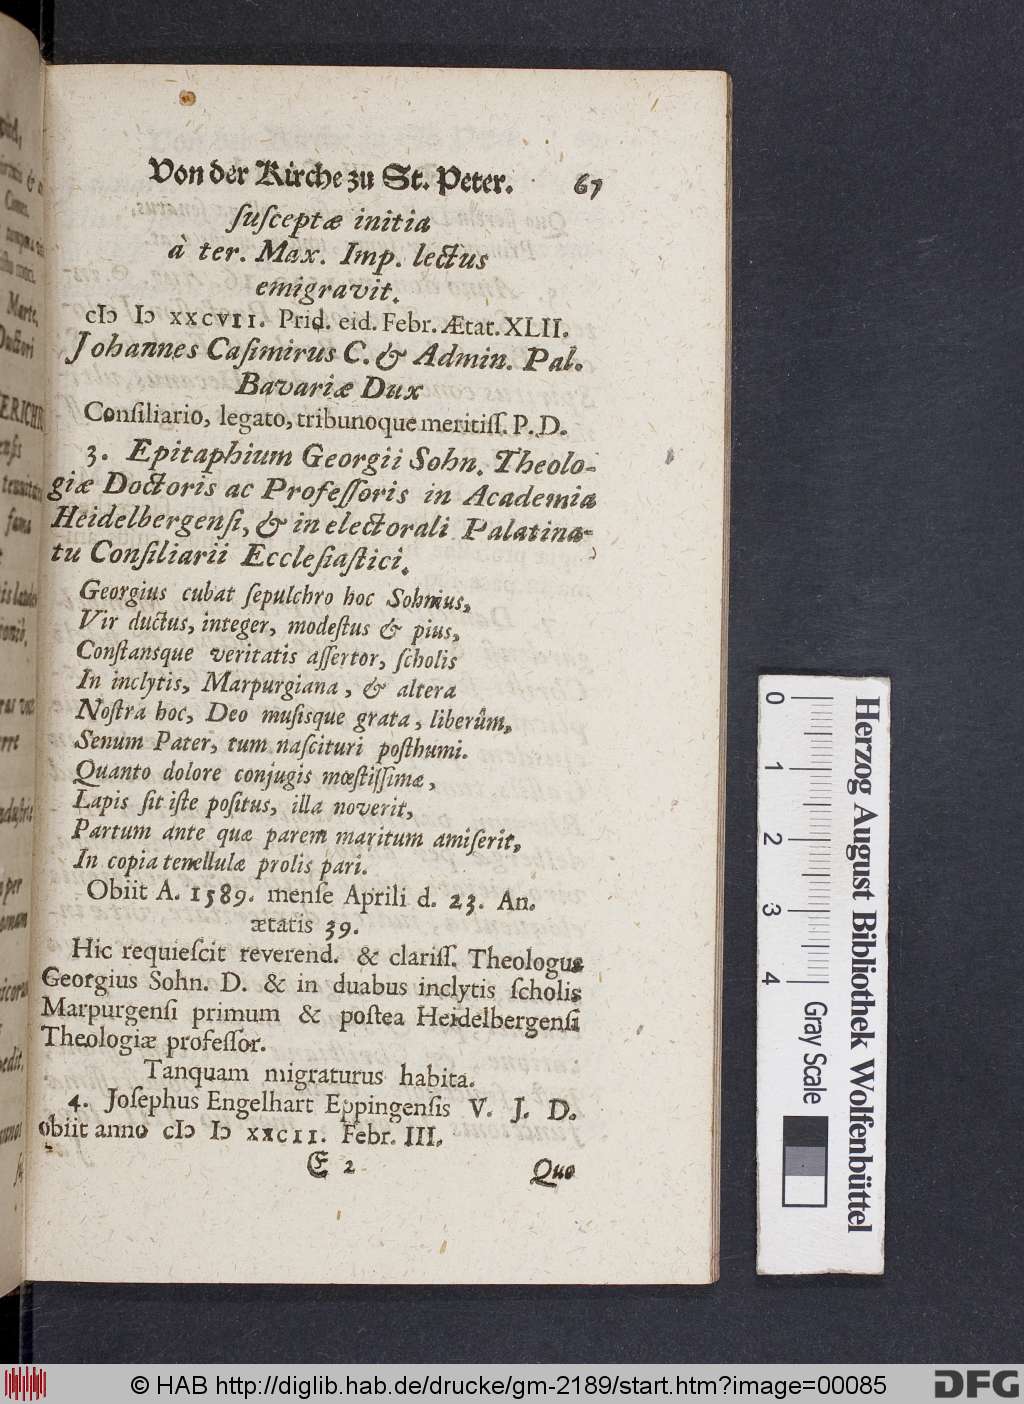 Von der Kirche zu St. Peter. 67
ſuſceptæ initia
à ter. Max. Imp. lectus
emigravit.
cIↄ Iↄ xxcvII. Prid. eid. Febr. Ætat. XLII.
Johannes Caſimirus C. & Admin. Pal.
Bavariæ Dux
Conſiliario, legato, tribunoque meritiſſ. P. D.
3. Epitaphium Georgii Sohn. Theolo-
giæ Doctoris ac Profeſſoris in Academia
Heidelbergenſi, & in electorali Palatina-
tu Conſiliarii Eccleſiaſtici.
Georgius cubat ſepulchro hoc Sohnius,
Vir ductus, integer, modeſtus & pius,
Conſtansque veritatis aſſertor, ſcholis
In inclytis, Marpurgiana, & altera
Noſtra hoc, Deo muſisque grata, liberûm,
Senum Pater, tum naſcituri poſthumi.
Quanto dolore conjugis mœſtiſſimæ,
Lapis ſit iſte poſitus, illa noverit,
Partum ante quæ parem maritum amiſerit,
In copia tenellulæ prolis pari.
Obiit A. 1589. menſe Aprili d. 23. An.
ætatis 39.
Hic requieſcit reverend. & clariſſ. Theologus
Georgius Sohn. D. & in duabus inclytis ſcholis
Marpurgenſi primum & poſtea Heidelbergenſi
Theologiæ profeſſor.
Tanquam migraturus habita.
4. Joſephus Engelhart Eppingenſis V. J. D.
obiit anno cIↄ Iↄ xxcII. Febr. III.
E 2 Quo
0 1 2 3 4 Gray Scale
Herzog August Bibliothek Wolfenbüttel
© HAB http://diglib.hab.de/drucke/gm-2189/start.htm?image=00085
DFG